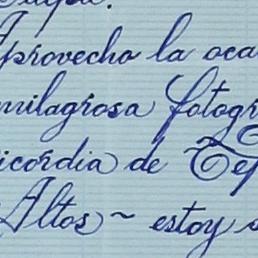 Aprovecho la oca
milagrosa fotogr
icordia de Tep
Altos ~ estoy